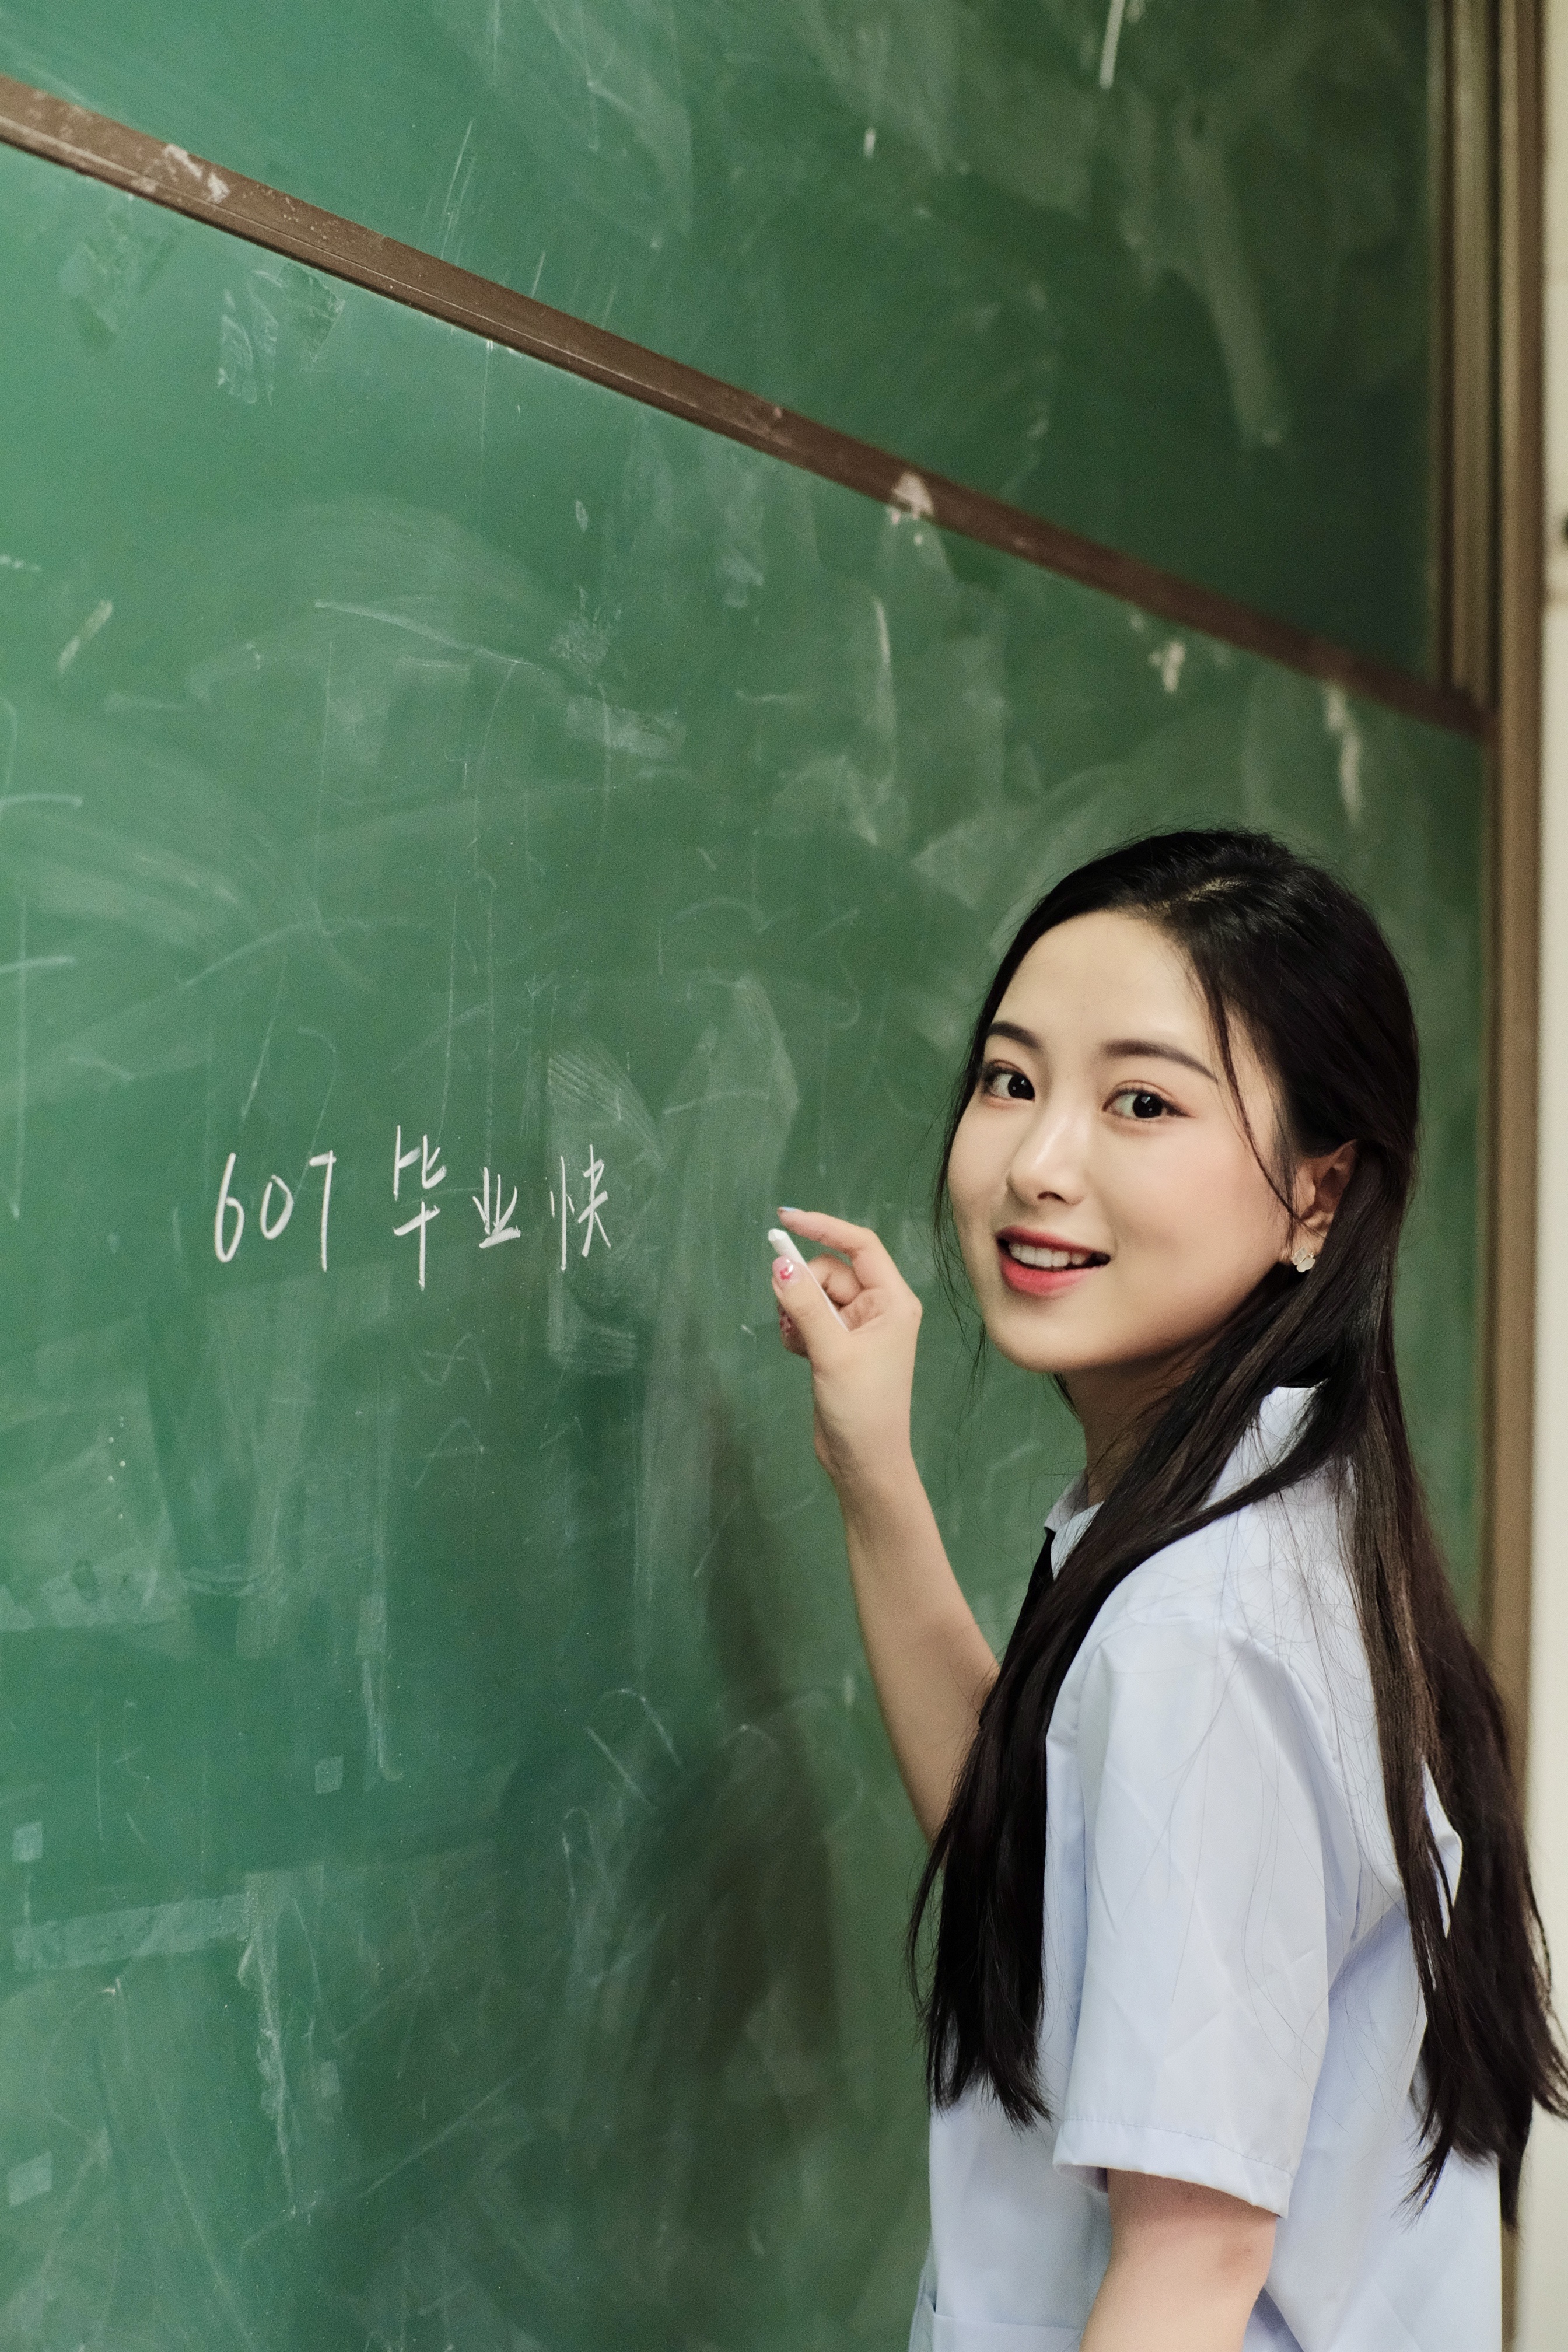 607 毕业快